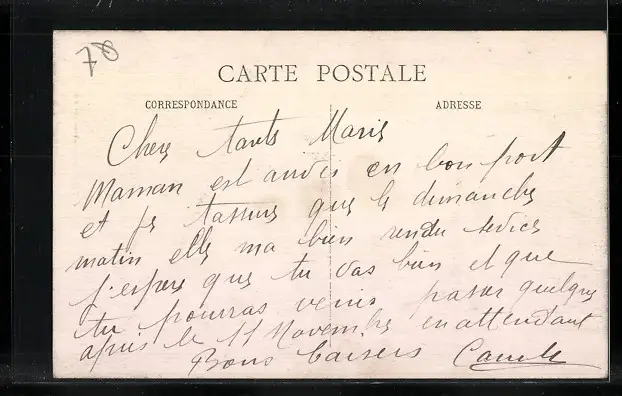 78
CARTE POSTALE
CORRESPONDANCE
ADRESSE
Chere tante Marie
Maman est arrivée en bon port
et je t'assure que le dimanche
matin elle ma bien rendu service
j'espere que tu vas bien et que
tu pourras venir passer quelques
après le 11 Novembre en attendant
Bons baisers Camille